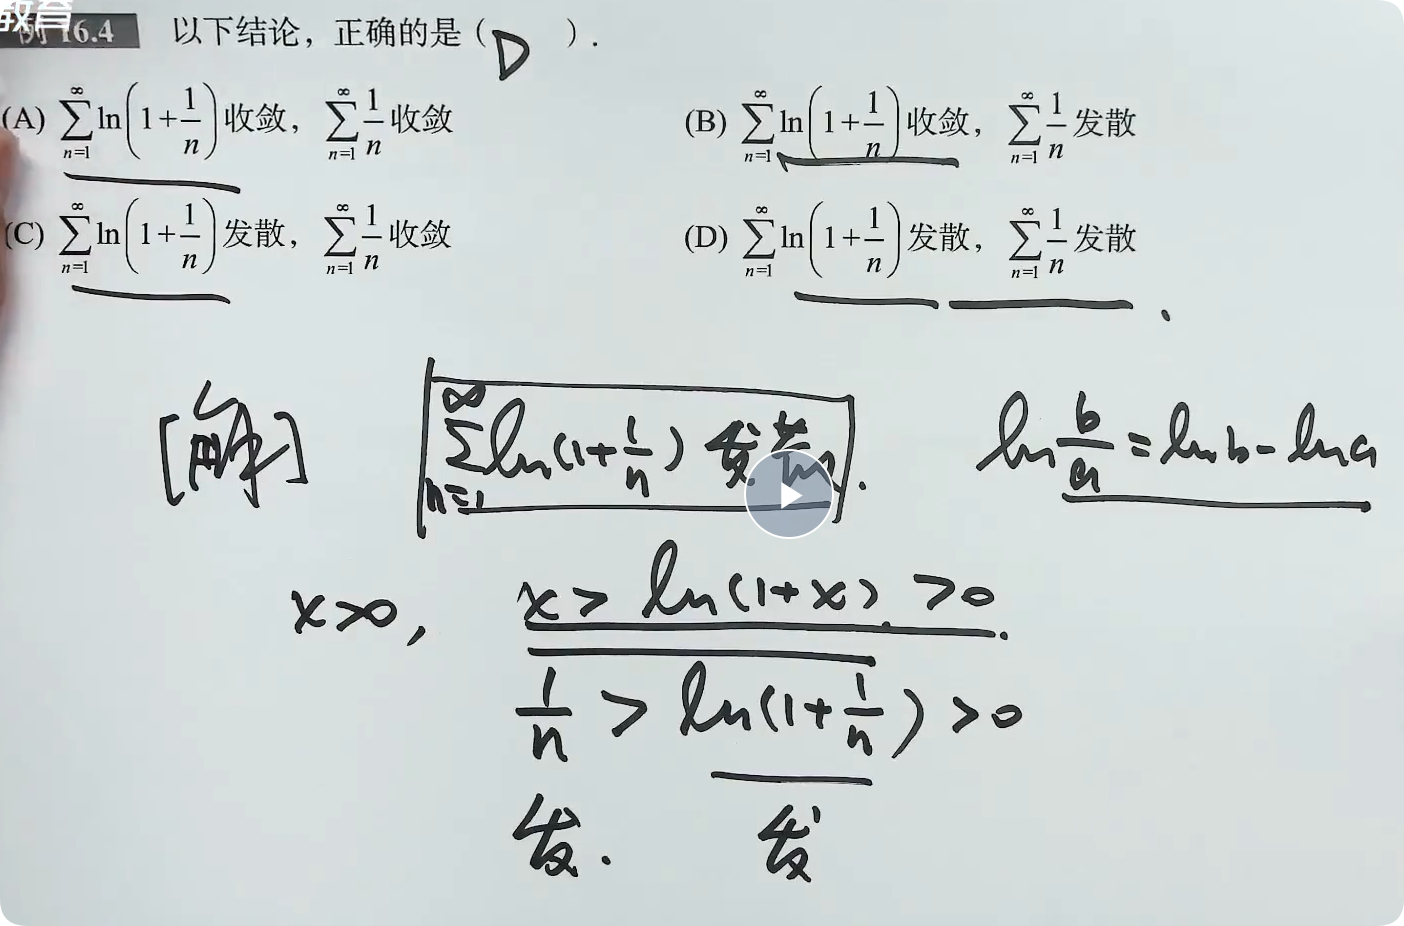 教育
例 16.4 以下结论，正确的是（ D ）.
(A) ∑_{n=1}^{∞} ln(1+1/n) 收敛，∑_{n=1}^{∞} 1/n 收敛
(B) ∑_{n=1}^{∞} ln(1+1/n) 收敛，∑_{n=1}^{∞} 1/n 发散
(C) ∑_{n=1}^{∞} ln(1+1/n) 发散，∑_{n=1}^{∞} 1/n 收敛
(D) ∑_{n=1}^{∞} ln(1+1/n) 发散，∑_{n=1}^{∞} 1/n 发散
[解] ∑_{n=1}^{∞} ln(1+1/n) 发散. ln b/a = ln b - ln a
x>0, x > ln(1+x) >0.
1/n > ln(1+1/n) >0
发. 发